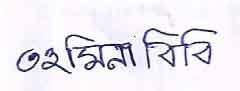 তহমিনা বিবি